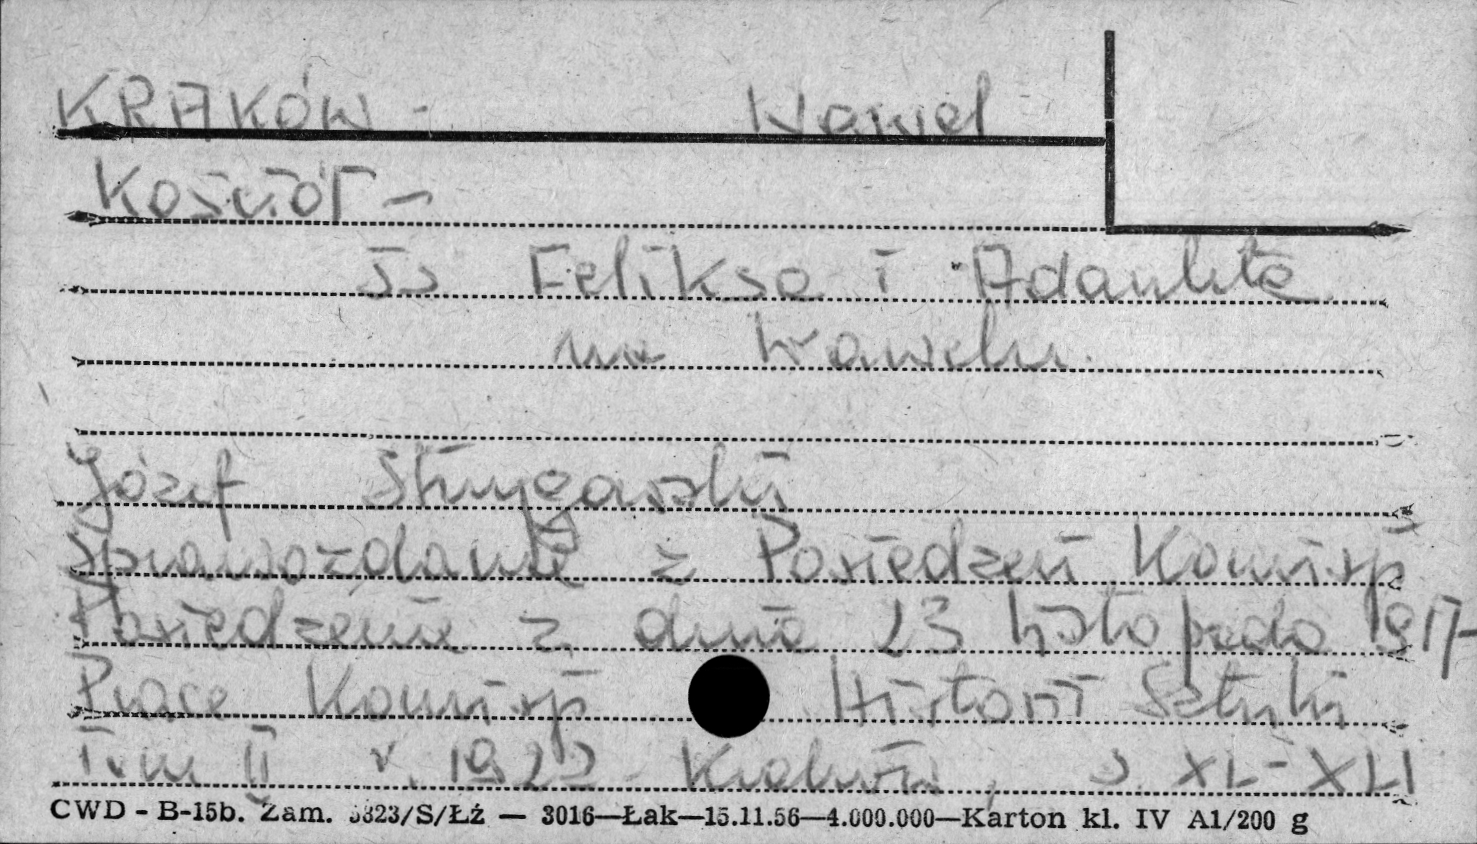 KRAKÓW - Wawel
Kościół -
ŚŚ Feliksa i Adaukta
na Wawelu.
Józef
Sprawozdanie z Posiedzeń Komisji
Posiedzenie z dnia 23 listopada 1917
Prace Komisji Historii Sztuki
Tom II r. 1922 Kraków, s. XL-XLI
CWD - B-15b. Zam. 5823/S/Łż — 3016—Łak—15.11.56—4.000.000—Karton kl. IV A1/200 g